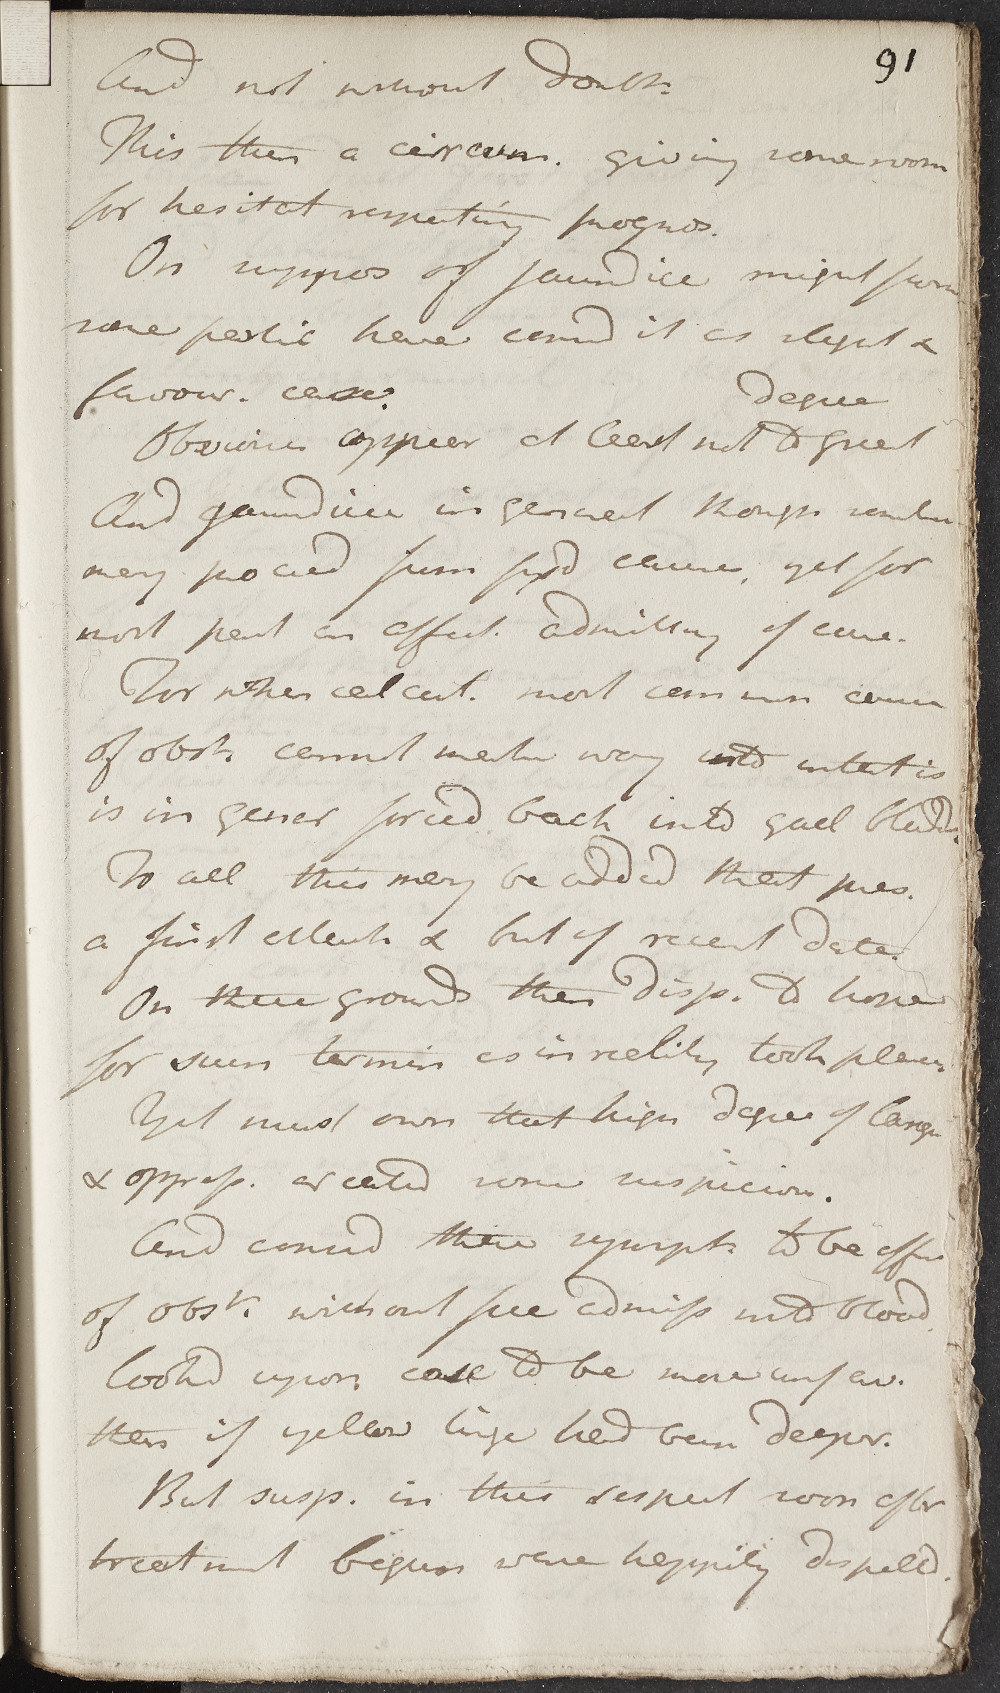 91
And not without doubt.
This then a circum. giving some room
for hesitat respecting prognos.
On suppos of jaundice might from
some partic have consd it as slight &
favour. case.
degree
Obvious appear at least not to great
And jaundice in general though somtim
may proceed from fixd cause, yet for
most part an affect. admitting of cure.
For when calcul. most common cause
of obstr. cannot make way into intestis
is in gener forced back into gall bladdr.
To all this may be added that pres.
a first attack & but of recent date.
On these grounds then disp. to hope
for such termin as in reality took place
Yet must own that high degree of langu
& oppress. created some suspicion.
And consd these sympt. to be effe
of obstr. without free admiss into blood
lookd upon case to be more unfav.
than if yellow tinge had been deeper.
But susp. in this respect soon after
treatment begun were happily dispelld.